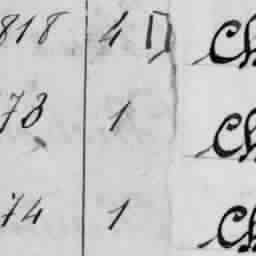 818 4 Ch
73 1 Ch
74 1 Ch